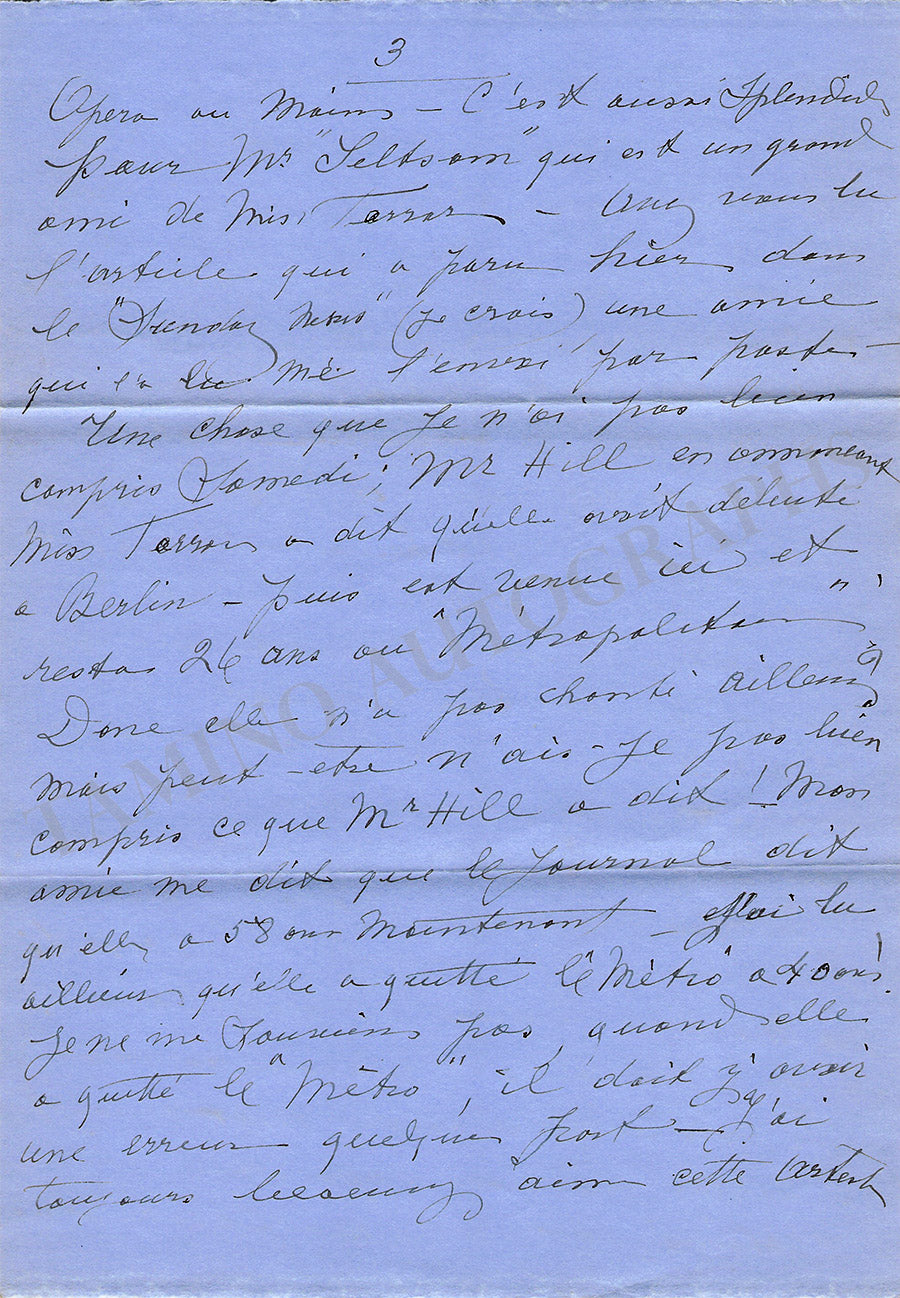 3
Opera au moins – C'est aussi Splendide
pour Mr "Seltsam" qui est un grand
ami de Miss Farrar – Avez vous lu
l'article qui a paru hier dans
le "Sunday News" (je crois) une amie
qui l'a lu me l'envoi par poste –
Une chose que je n'ai pas bien
compris Samedi; Mr Hill en annonçant
Miss Farrar a dit qu'elle avait débuté
a Berlin – puis est venue ici et
resta 26 ans au "Métropolitan"
Donc elle n'a pas chanté ailleurs
mais peut-etre n'ais-je pas bien
compris ce que Mr Hill a dit! Mon
amie me dit que le Journal dit
qu'elle a 58 ans maintenant – J'ai lu
ailleurs qu'elle a quitté le Mètro a 40 ans
Je ne me Souviens pas quand elle
a quitté le "Mètro", il doit y avoir
une erreur quelque part – J'ai
toujours beaucoup aimé cette Artiste
TAMINO AUTOGRAPHS